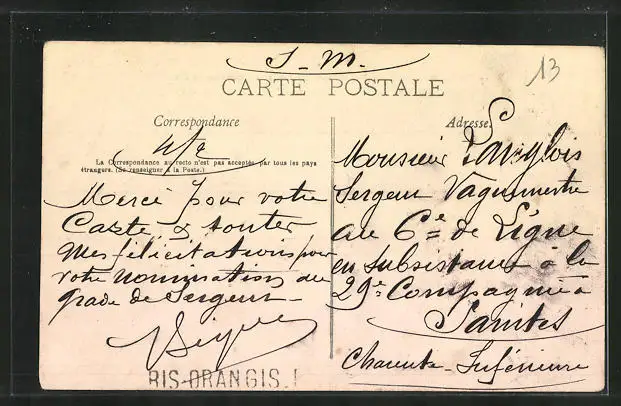 S. M.
13
CARTE POSTALE
Correspondance
Adresse
La Correspondance au recto n'est pas acceptée par tous les pays
étrangers. (Se renseigner à la Poste.)
Merci pour votre
Carte & toutes
mes félicitations pour
votre nomination au
grade de Sergent
Monsieur Langlois
Sergent Vaguemestre
au 6e de Ligne
en subsistance à la
29e Compagnie à
Saintes
Charente-Inférieure
RIS-ORANGIS